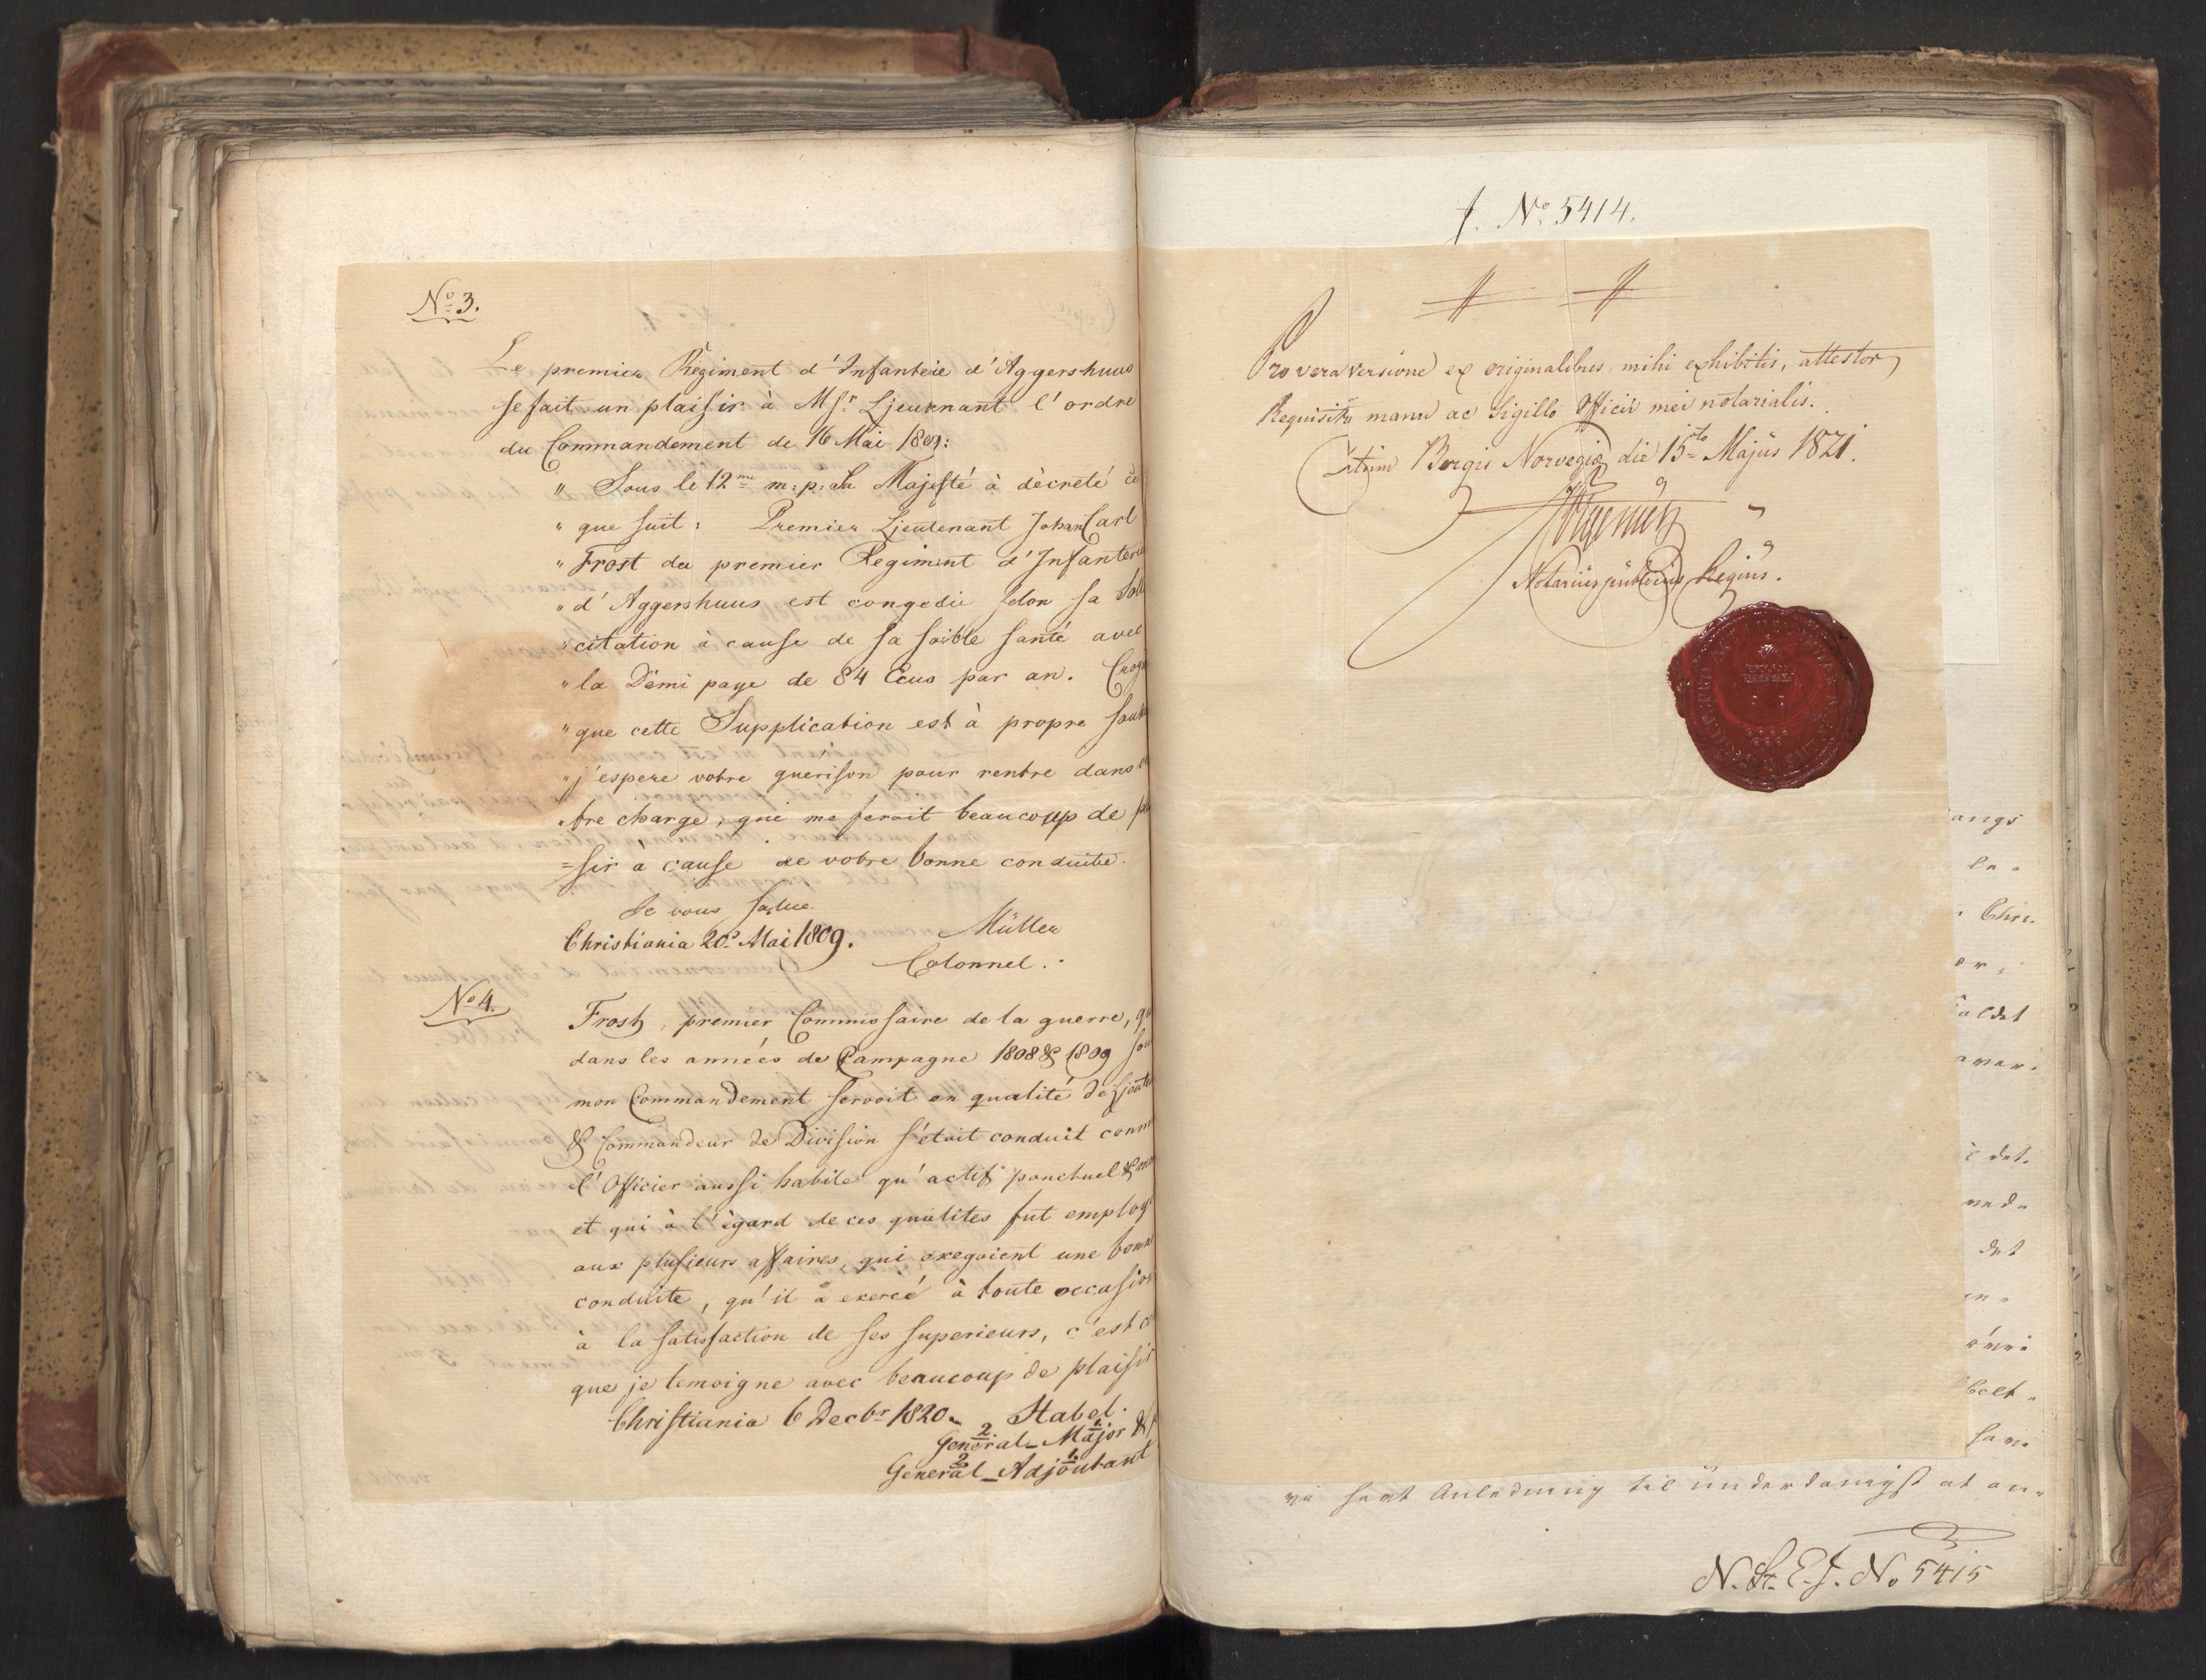 No 3.
Le premier Regiment d'Infanteie d'Aggershuus
se fait un plaisir à Msr. Ljeutnant l'ordre
du Commandement de 16 Mai 1809:
" Sous le 12me m: p: Sa Majesté à dècreté ce
" que suit: Premier Ljeutenant Johan Carl
" Frost du premier Regiment d'Infanterie
" d'Aggershuus est congedié selon sa Solli
" citation à cause de sa foible santé avec
" la Demi paye de 84 Ecus par an.
" que cette Supplication est à propre
" j'espere votre guérison pour rentre dans
" tre charge, qui me feroit beaucoup de
=sir a cause de votre bonne conduite.
Je vous salue
Christiania 20 Mai 1809. Müller
Colonnel.
No 4.
Frost, premier Commissaire de la guerre, qu
dans les années de Campagne 1808 & 1809
mon Commandement servoit en qualité de
& Commandeur de Division s'étoit conduit comm
l'Officier aussi habile qu'actif ponctuel &
et qui à l'égard de ces qualites fut employ
aux plusieurs affaires, qui exegoient une bonn
conduite, qu'il a exercé à toute occasion
à la satisfaction de ses superieurs, c'est ce
que je temoigne avec beaucoup de plaisir
Christiania 6 Decbr 1820. Stabel.
2 1.
General-Major &
2 1.
General-Adjoutant
f. No 5414.
Pro vera versione ex originalibus, mihi exhibitis, attestor,
Requisitu manu ac Sigillo Officii mei notarialis.
Bergis Norvegiæ die 15to Majus 1821.
Notarius publicus Regius.
angs
le.
Chri.
or,
aver.
det.
med.
det
en.
sam.
vi havt Anledning til underdanigst at an.
N. St. E. J. No 5415